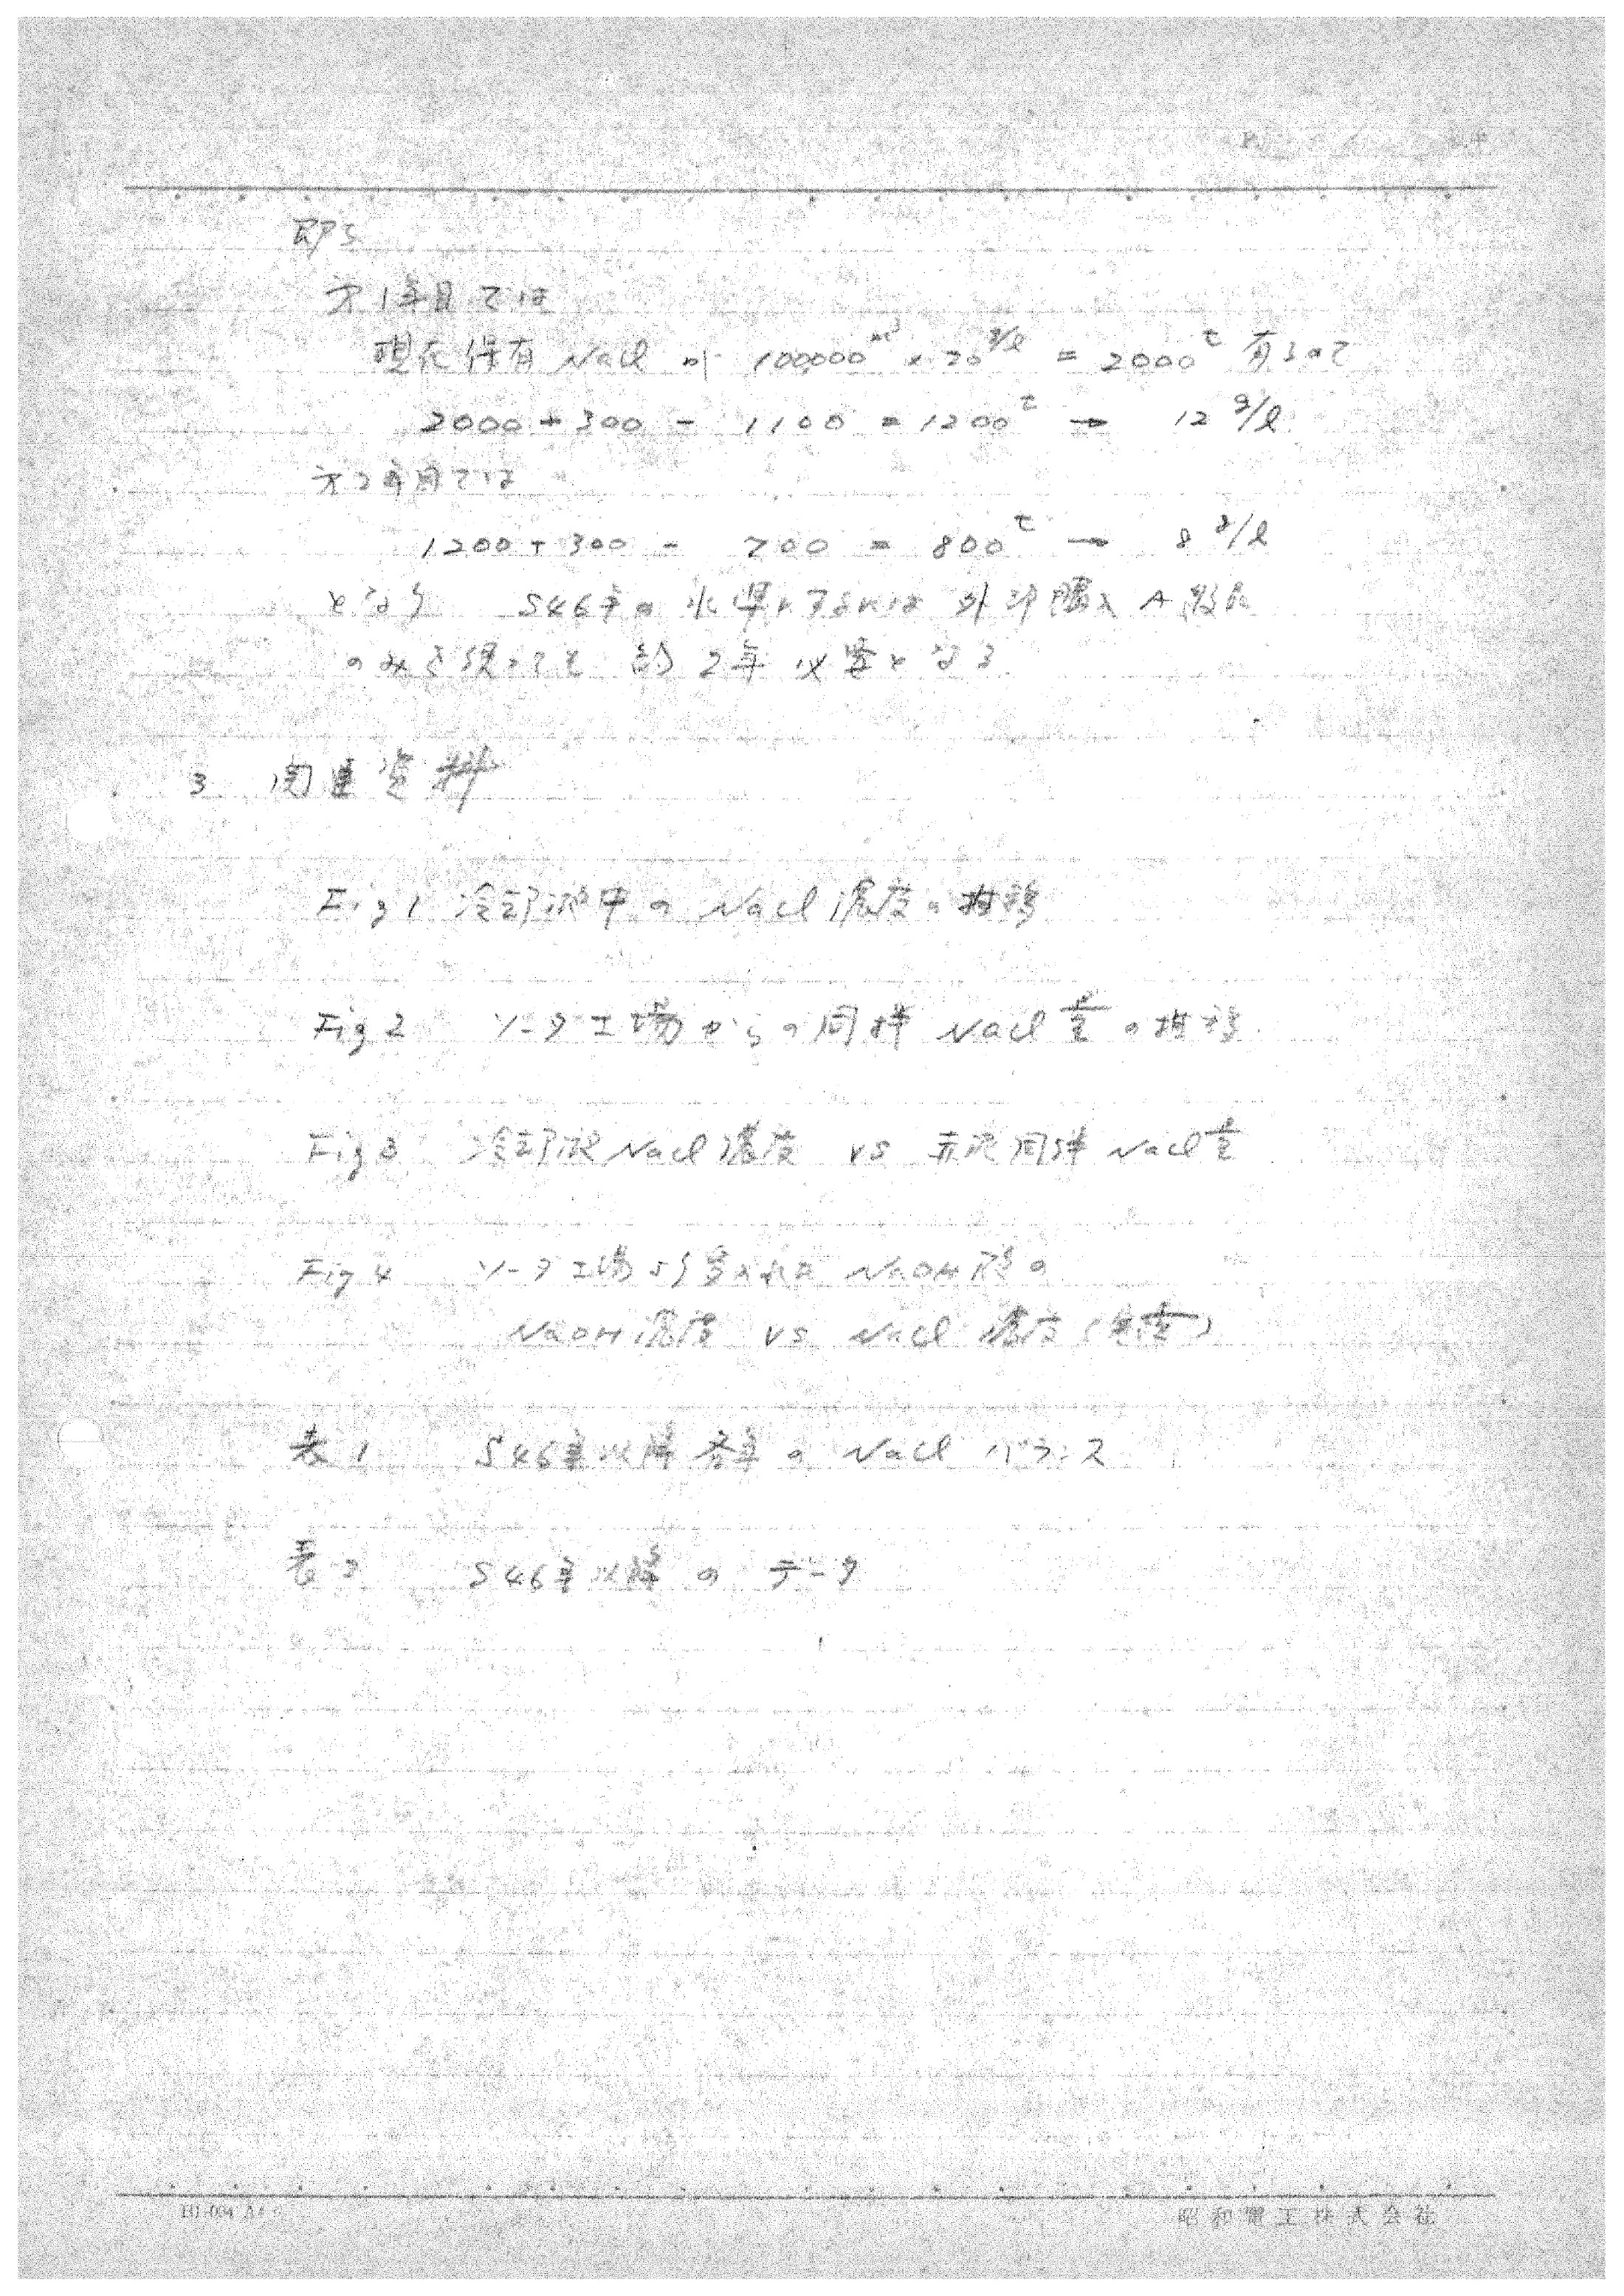 即ち
才1年目では
現在保有 NaCl が 100,000 m³ × 20 g/l = 2000 t 有るので
2000 + 300 - 1100 = 1200 t → 12 g/l
才2年目では
1200 + 300 - 700 = 800 t → 8 g/l
となり S46年の水準にするには
のみを使っても 約2年必要となる
3 関連資料
Fig 1 冷却液中の NaCl 濃度の推移
Fig 2 ソーダ工場からの同伴 NaCl 量の推移
Fig 3 冷却液 NaCl 濃度 vs 赤泥同伴 NaCl 量
Fig 4 ソーダ工場より受入れた NaOH 液の
NaOH 濃度 vs NaCl 濃度
表1 S46年以降各年の NaCl バランス
表2 S46年以降の データ
昭和電工株式会社